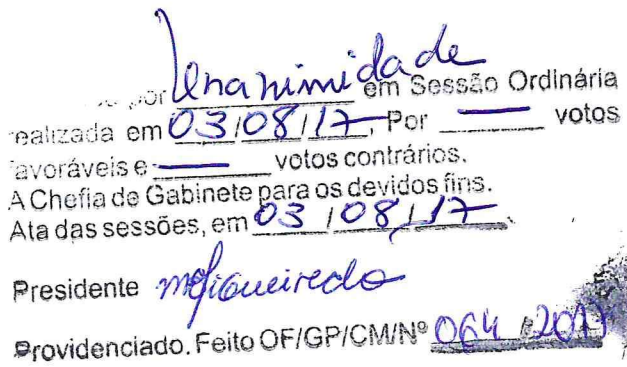 por Unanimidade em Sessão Ordinária
realizada em 03/08/17, Por — votos
favoráveis e — votos contrários.
A Chefia de Gabinete para os devidos fins.
Ata das sessões, em 03/08/17
Presidente mfigueiredo
Providenciado. Feito OF/GP/CM/Nº 064/2017